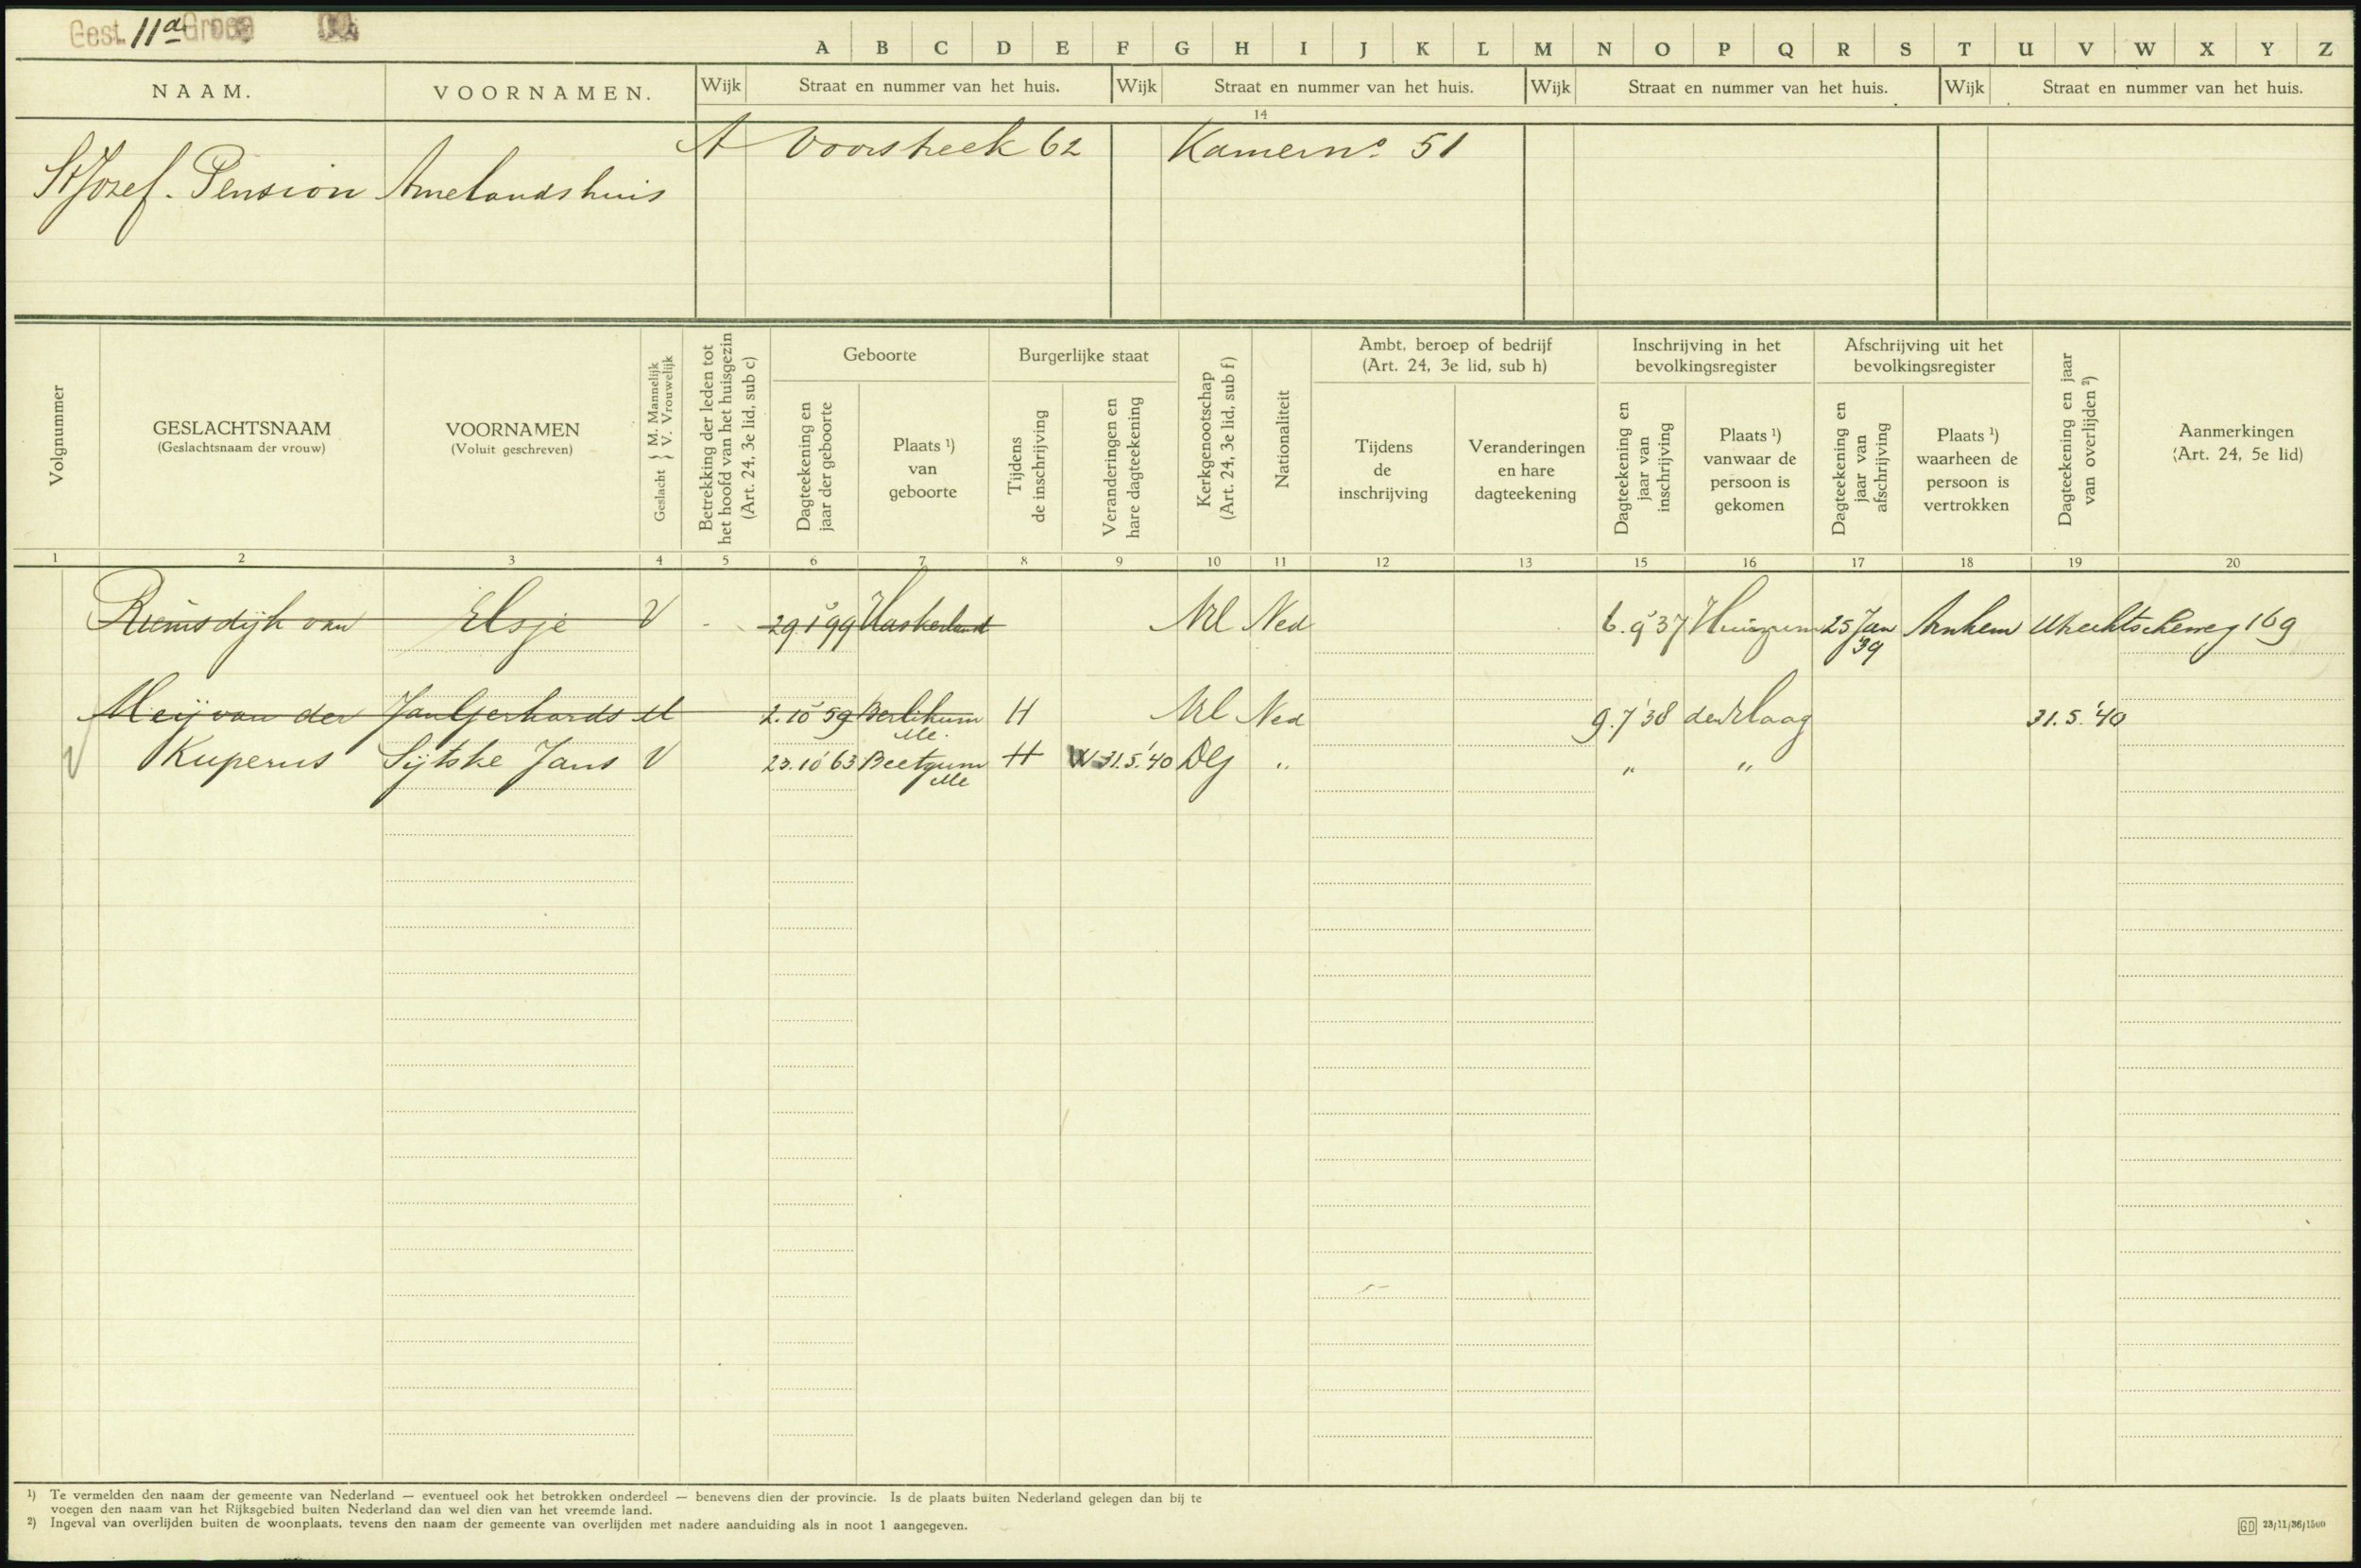 Gest. 11a Groep
A B C D E F G H I J K L M N O P Q R S T U V W X Y Z
NAAM. VOORNAMEN. Wijk Straat en nummer van het huis. Wijk Straat en nummer van het huis. Wijk Straat en nummer van het huis. Wijk Straat en nummer van het huis.
14
A Voorstreek 62 Kamer no. 51
St Jozef. Pension Amelandshuis
Volgnummer
GESLACHTSNAAM
(Geslachtsnaam der vrouw)
VOORNAMEN
(Voluit geschreven)
Geslacht } M. Mannelijk
} V. Vrouwelijk
Betrekking der leden tot
het hoofd van het huisgezin
(Art. 24, 3e lid, sub c)
Geboorte
Dagteekening en
jaar der geboorte
Plaats ¹)
van
geboorte
Burgerlijke staat
Tijdens
de inschrijving
Veranderingen en
hare dagteekening
Kerkgenootschap
(Art. 24, 3e lid, sub f)
Nationaliteit
Ambt, beroep of bedrijf
(Art. 24, 3e lid, sub h)
Tijdens
de
inschrijving
Veranderingen
en hare
dagteekening
Inschrijving in het
bevolkingsregister
Dagteekening en
jaar van
inschrijving
Plaats ¹)
vanwaar de
persoon is
gekomen
Afschrijving uit het
bevolkingsregister
Dagteekening en
jaar van
afschrijving
Plaats ¹)
waarheen de
persoon is
vertrokken
Dagteekening en jaar
van overlijden ²)
Aanmerkingen
(Art. 24, 5e lid)
1 2 3 4 5 6 7 8 9 10 11 12 13 15 16 17 18 19 20
Riemsdijk van Elsje V 29.1'99 Haskerland NH Ned 6.9'37 Huizum 25 Jan '39 Arnhem Utrechtscheweg 169
Meij van der Jan Gerhards M 2.10'59 Berlikum Me. H NH Ned 9.7'38 den Haag 31.5.'40
V Kuperus Sijtske Jans V 23.10'63 Beetgum Me H W 31.5.'40 DG " " "
¹) Te vermelden den naam der gemeente van Nederland — eventueel ook het betrokken onderdeel — benevens dien der provincie. Is de plaats buiten Nederland gelegen dan bij te
voegen den naam van het Rijksgebied buiten Nederland dan wel dien van het vreemde land.
²) Ingeval van overlijden buiten de woonplaats, tevens den naam der gemeente van overlijden met nadere aanduiding als in noot 1 aangegeven.
GD 23/11/36/1500